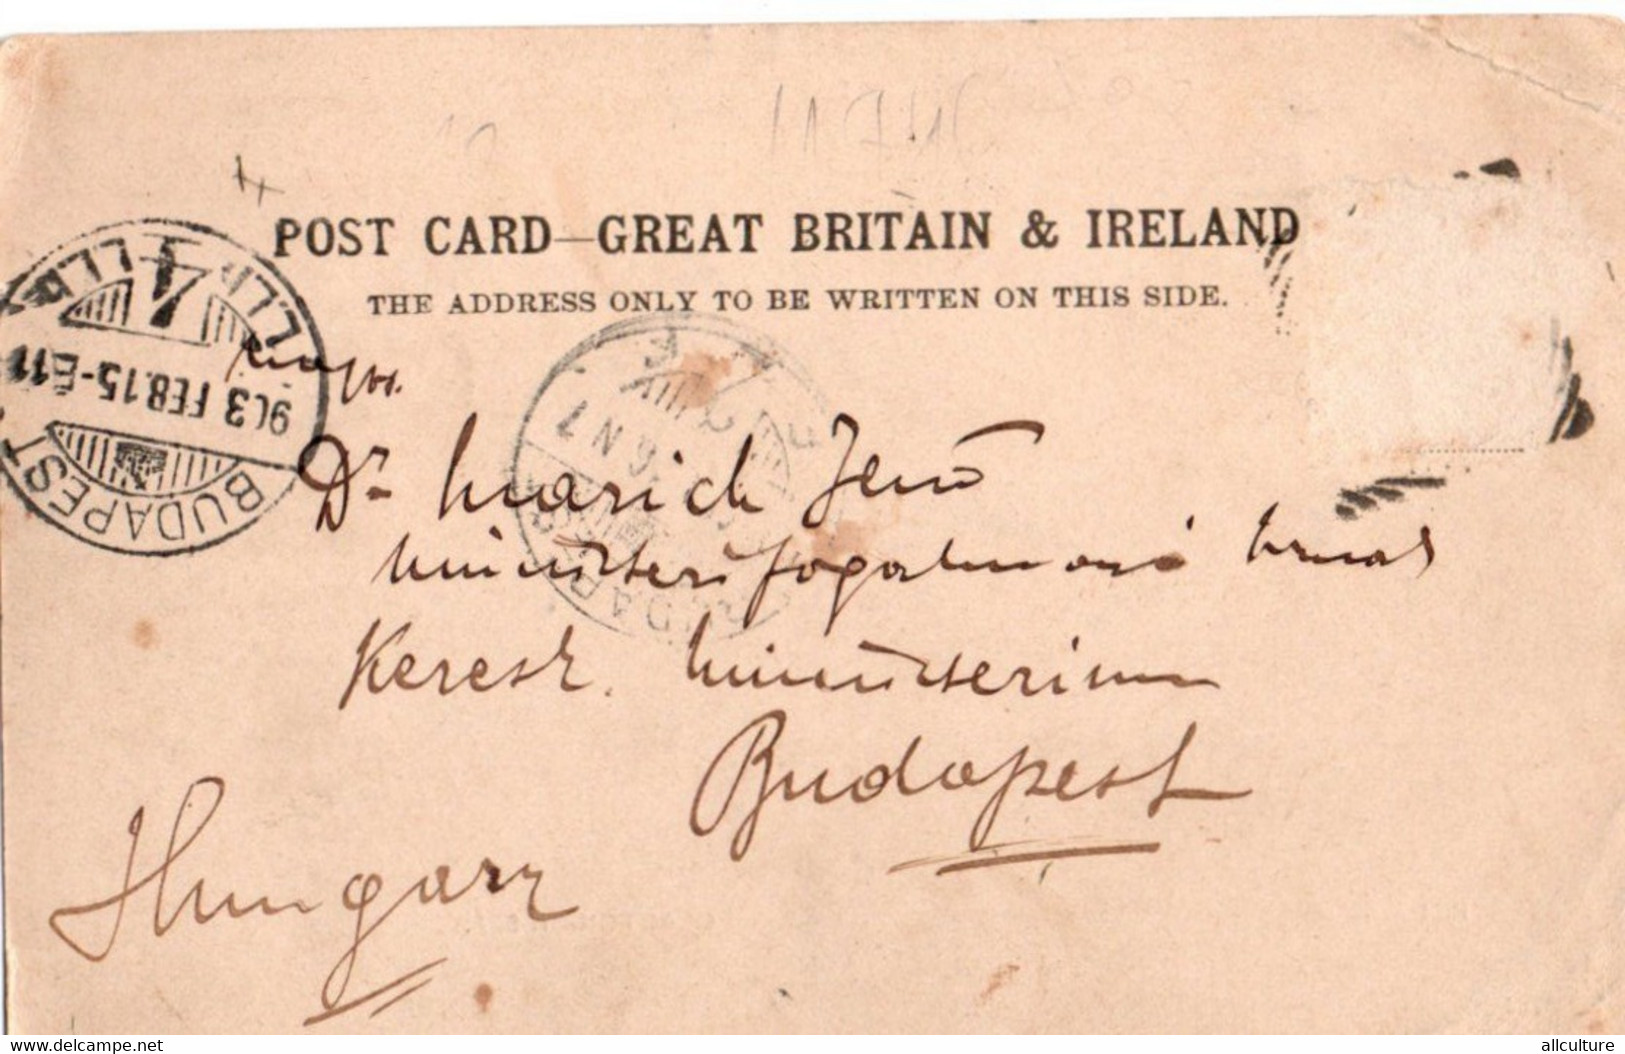 POST CARD—GREAT BRITAIN & IRELAND
THE ADDRESS ONLY TO BE WRITTEN ON THIS SIDE.
BUDAPEST
903 FEB.15-E11
Dr. Marich Jenő
ministeri fogalmazó
Keresk. Ministerium
Budapest
Hungary
www.delcampe.net
allculture